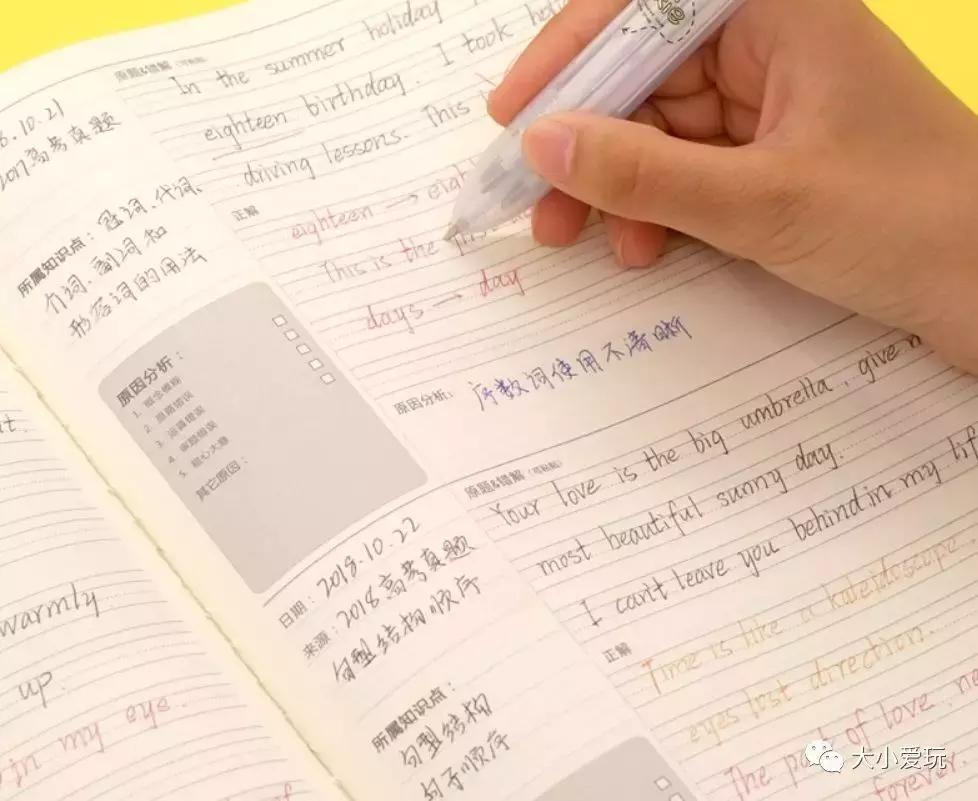 8.10.21
2017高考真题
所属知识点：冠词、代词、
介词、副词和
形容词的用法
原因分析：
1. 概念模糊
2. 思路错误
3. 运算错误
4. 审题错误
5. 粗心大意
其它原因：
原题&错解（可粘贴）
In the summer holiday
eighteen birthday. I took
driving lessons. This
正解
eighteen →
This is the
days → day
原因分析： 序数词使用不清晰
日期：2018.10.22
来源：2018高考真题
句型结构顺序
所属知识点：
句型结构
句子顺序
原题&错解（可粘贴）
Your love is the big umbrella, give
most beautiful sunny day.
I can't leave you behind in my
正解
Time is like a kaleidoscope
eyes lost direction.
The of love,
forever.
warmly
up.
大小爱玩